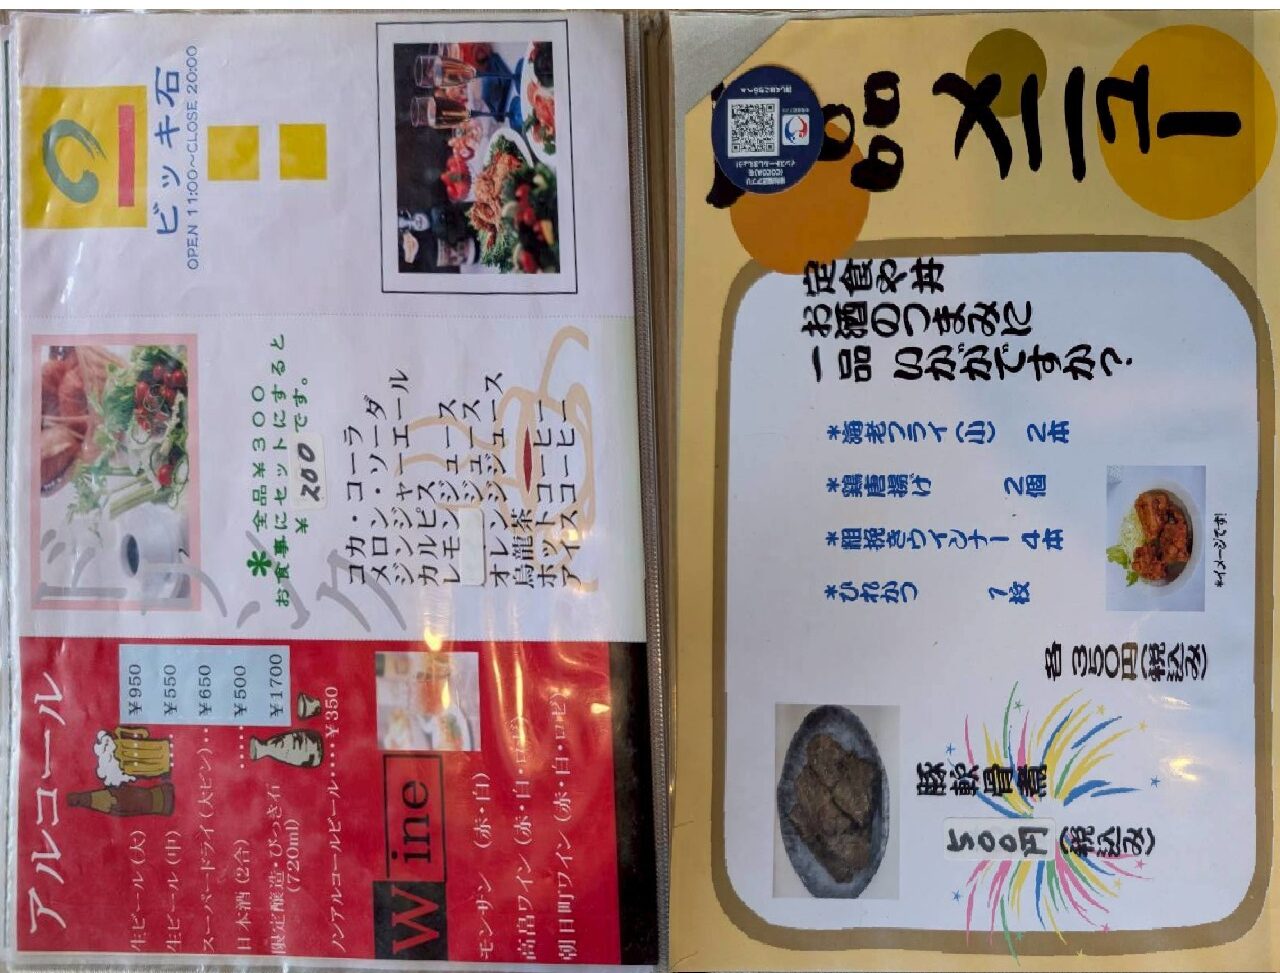 ビッキ石
OPEN 11:00〜CLOSE 20:00
ドリンク
*全品¥300
お食事にセットにすると
¥200です。
コカ・コーラ
メロン・ソーダ
ジンジャーエール
カルピス
レモンジュース
オレンジジュース
烏龍茶
ホットコーヒー
アイスコーヒー
アルコール
生ビール(大) ¥950
生ビール(中) ¥550
スーパードライ(大ビン)‥ ¥650
日本酒(2合) ‥‥ ¥500
限定醸造 びっき石 ¥1700
(720ml)
ノンアルコールビール‥‥¥350
Wine
モンサン (赤・白)
高畠ワイン(赤・白・ロゼ)
朝日町ワイン(赤・白・ロゼ)
品メニュー
定食や丼
お酒のつまみに
一品 いかがですか?
*海老フライ(小) 2本
*鶏唐揚げ 2個
*粗挽きウインナー 4本
*ひれかつ 1枚
*イメージです!
各350円(税込み)
豚軟骨煮
500円(税込み)